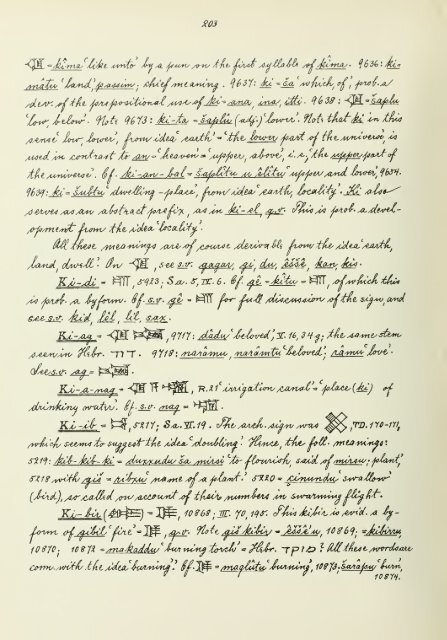 203
= kîma 'like unto' by a pun on the first syllable of kîma. 9636: ki-
mâtu 'land', passim; chief meaning. 9637: ki = ša 'which, of', prob. a
dev. of the prepositional use of ki = ana, ina, itti. 9638: = šaplu
'low, below'. Note 9673: ki-ta = šaplu (adj.) 'lower'. Note that ki in this
sense 'low, lower', from idea 'earth' = 'the lower part of the universe' is
used in contrast to an = 'heaven' = 'upper, above', i.e., 'the upper part of
the universe'. Cf. ki-an-bal = šaplîtu u êlîtu 'upper and lower', 9694.
9639: ki = šubtu 'dwelling-place', from idea 'earth, locality'. Ki also
serves as an abstract prefix, as in ki-el, q.v. This is prob. a devel-
opment from the idea 'locality'.
All these meanings are of course derivable from the idea 'earth,
land, dwell'. On , see s.v. gagar, gi, du, êššê, kan, kis.
Ki-di = , 5923, Sa. 5, IV. 6. Cf. gê = kîtu = , of which this
is prob. a byform. Cf. s.v. gê = for full discussion of the sign, and
see s.v. kid, lêl, lil, sax.
Ki-ag = , 9717: dâdu 'beloved', V. 16, 34 g; the same stem
seen in Hebr. דוד. 9718: narâmu, narâmtu 'beloved', râmu 'love'.
See s.v. ag = .
Ki-a-nag = , R. 21 'irrigation canal' = 'place (ki) of
drinking water'. Cf. s.v. nag = .
Ki-ib = , 5217; Sa. VI. 19. The arch. sign was , TD. 170-171,
which seems to suggest the idea 'doubling'. Hence, the foll. meanings:
5219: kib-kib-ki = duxxudu ša mirsi 'to flourish, said of mirsu; plant',
5218 with giš = 'name of a plant.' 5220 = çinundu 'swallow'
(bird), so called on account of their numbers in swarming flight.
Ki-bir = , 10868; III. 70, 195. This kibir is evid. a by-
form of gibil 'fire' = , q.v. Note giš kibir = êššê'u, 10869; = kibirru,
10870; 1087 = makaddu 'burning torch' = Hebr. מוקד? All these words are
conn. with the idea 'burning'. Cf. = maqlûtu 'burning', 10873; šarâpu 'burn',
10874.